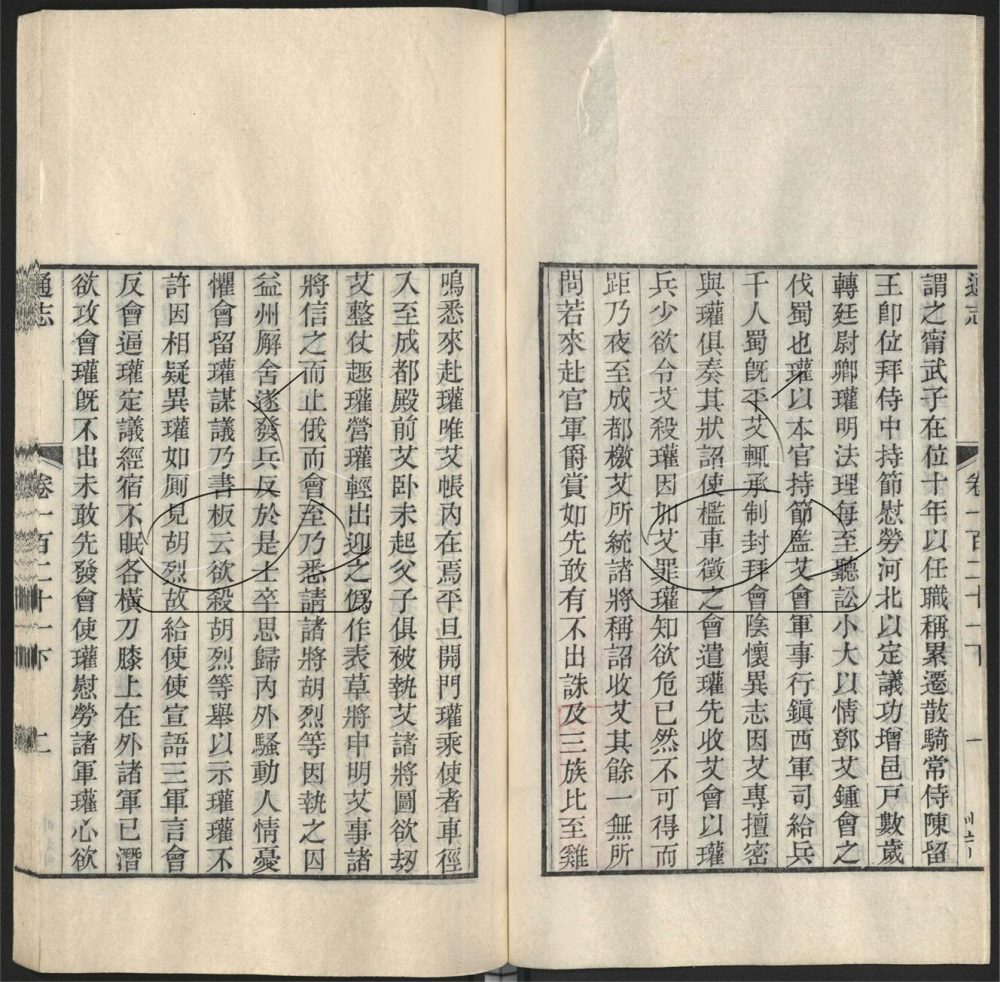 通志
卷一百二十一下
一
謂之甯武子在位十年以任職稱累遷散騎常侍陳留
王卽位拜侍中持節慰勞河北以定議功增邑戸數歲
轉廷尉卿瓘明法理每至聽訟小大以情鄧艾鍾會之
伐蜀也瓘以本官持節監艾會軍事行鎮西軍司給兵
千人蜀旣平艾輒承制封拜會陰懷異志因艾專擅密
與瓘俱奏其狀詔使檻車徵之會遣瓘先收艾會以瓘
兵少欲令艾殺瓘因加艾罪瓘知欲危已然不可得而
距乃夜至成都檄艾所統諸將稱詔收艾其餘一無所
問若來赴官軍爵賞如先敢有不出誅及三族比至雞
鳴悉來赴瓘唯艾帳內在焉平旦開門瓘乘使者車徑
入至成都殿前艾卧未起父子俱被執艾諸將圖欲刼
艾整仗趣瓘營瓘輕出迎之僞作表草將申明艾事諸
將信之而止俄而會至乃悉請諸將胡烈等因執之囚
益州廨舍遂發兵反於是士卒思歸內外騷動人情憂
懼會留瓘謀議乃書板云欲殺胡烈等舉以示瓘瓘不
許因相疑異瓘如厠見胡烈故給使使宣語三軍言會
反會逼瓘定議經宿不眠各橫刀膝上在外諸軍已潛
欲攻會瓘旣不出未敢先發會使瓘慰勞諸軍瓘心欲
通志
卷一百二十一下
二